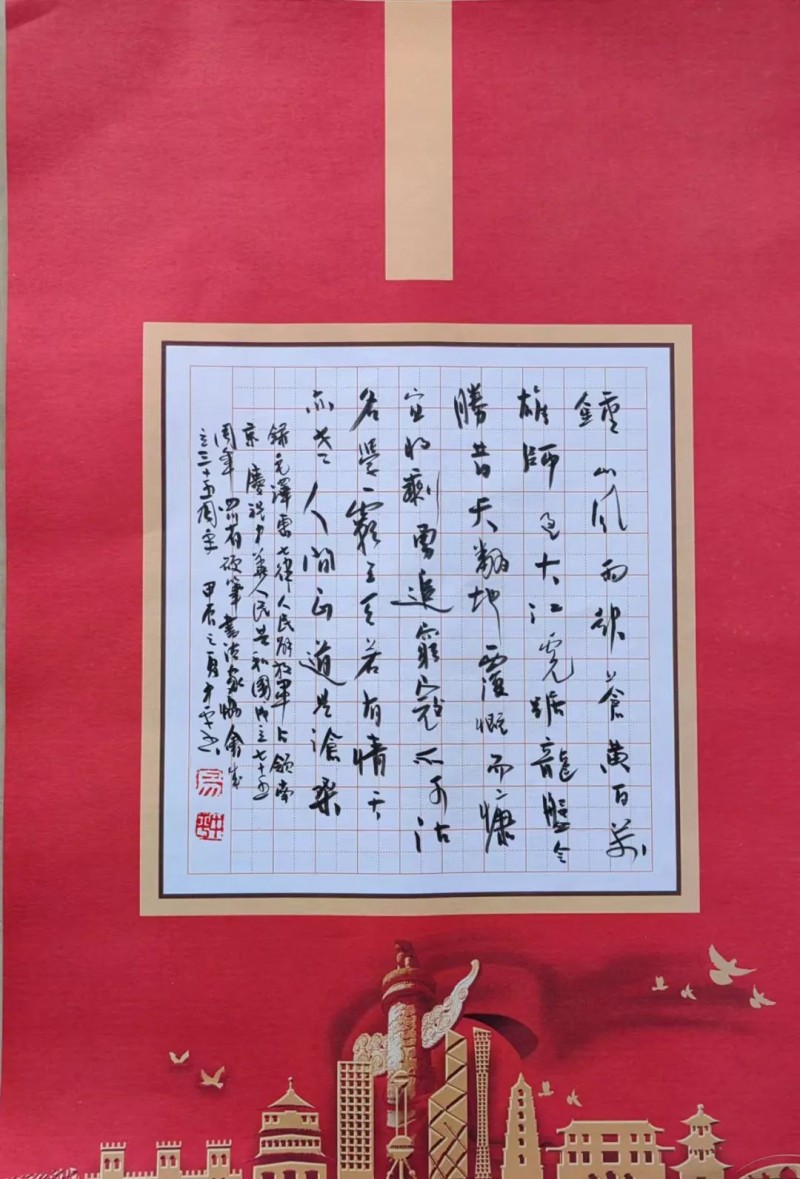 鍾山風雨起蒼黃百萬
雄師過大江虎踞龍盤今
勝昔天翻地覆慨而慷
宜將剩勇追窮寇不可沽
名學霸王天若有情天
亦老人間正道是滄桑
錄毛澤東七律人民解放軍占領南
京 慶祝中華人民共和國成立七十五
周年 四川省硬筆書法家協會成
立三十五周年 甲辰之夏